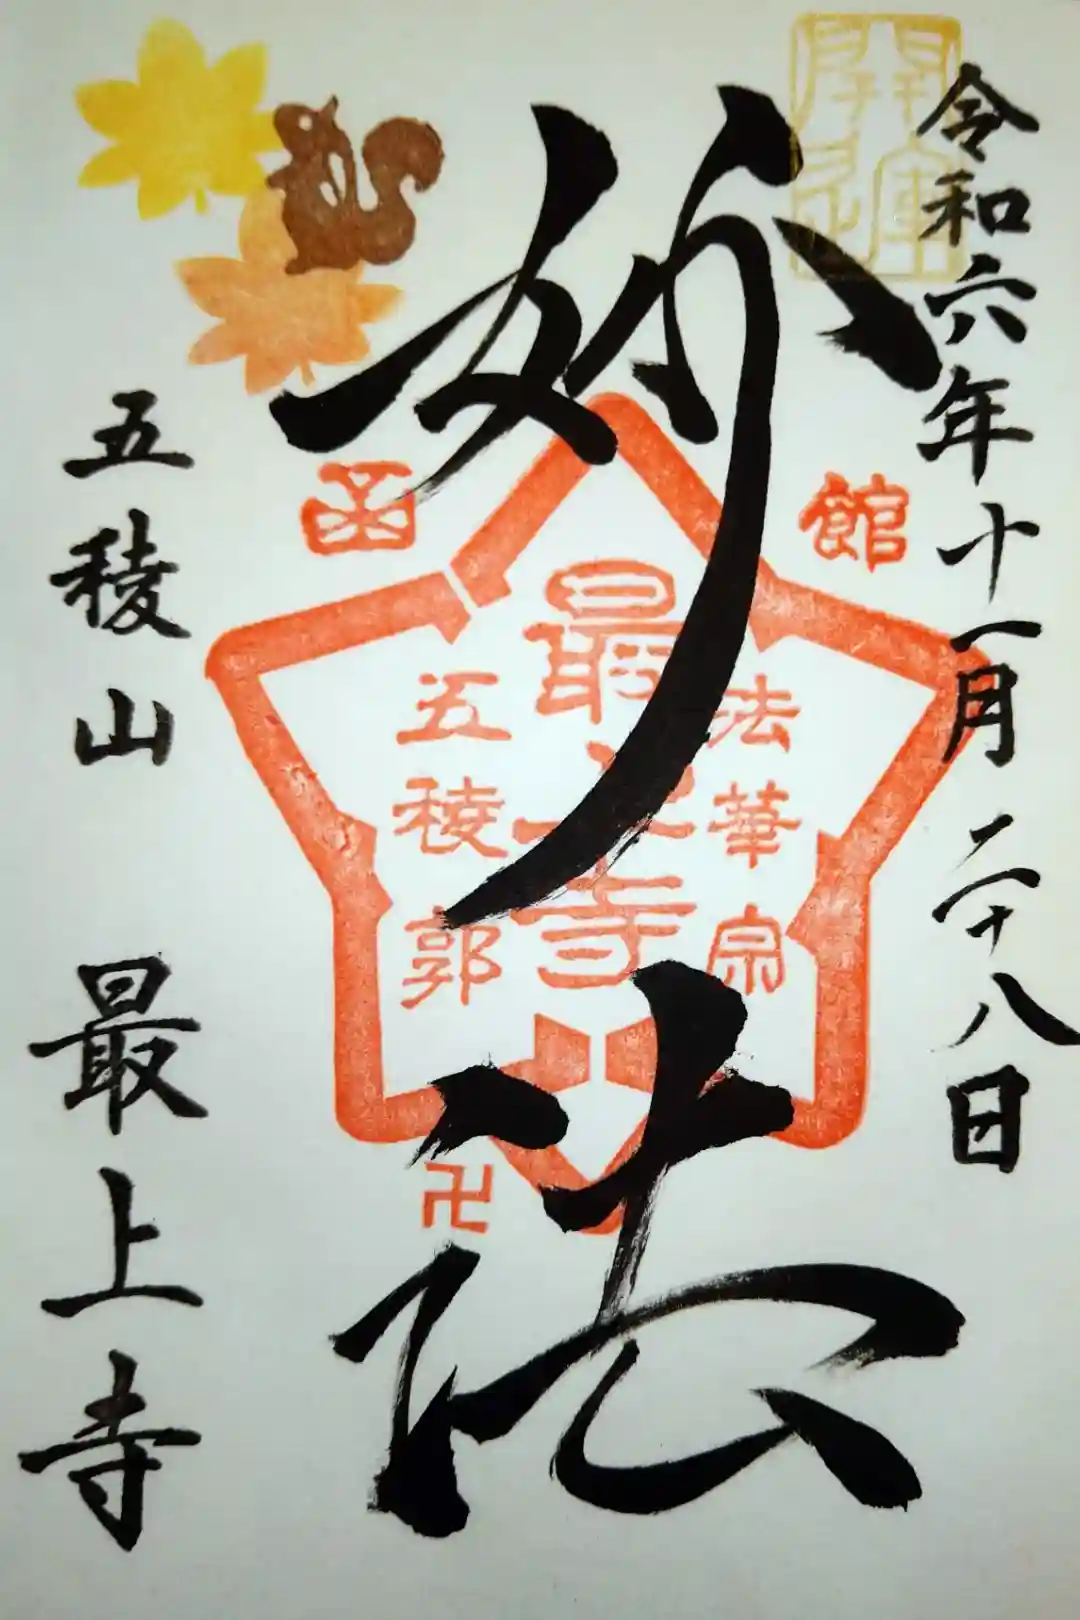 令和六年十一月二十八日
妙法
函館
法華宗
最上寺
五稜郭
卍
五稜山 最上寺